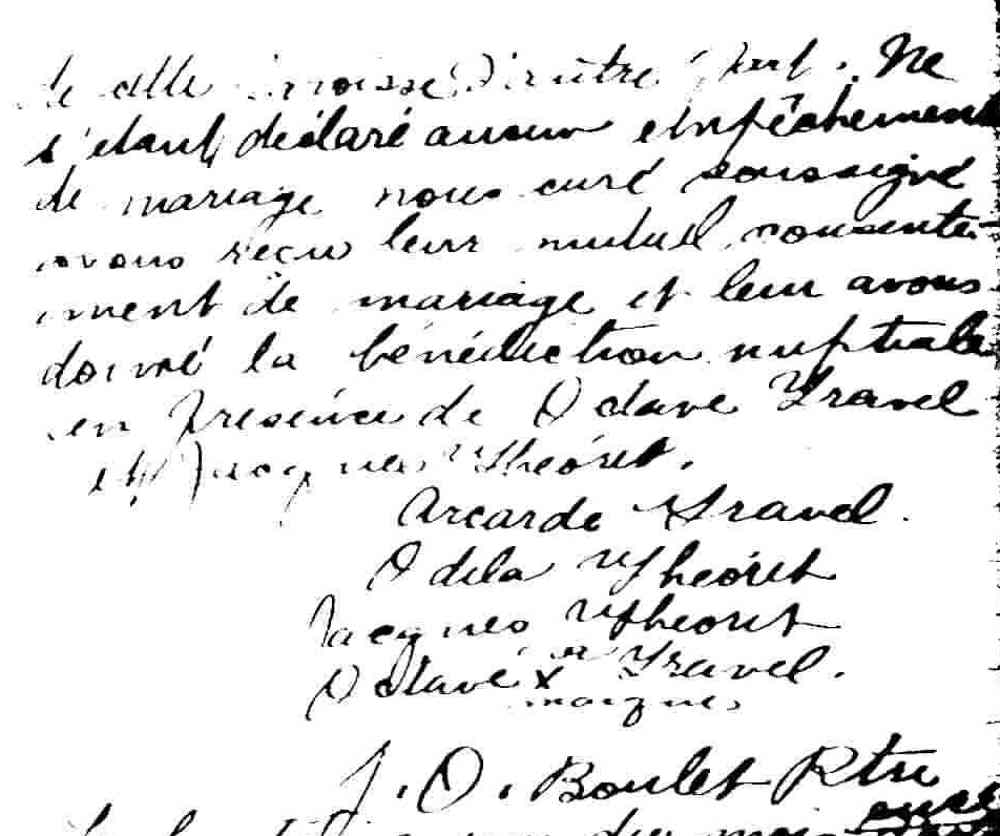 de cette paroisse d'autre part. Ne
s'étant déclaré aucun empêchement
de mariage nous curé soussigné
avons reçu leur mutuel consente-
ment de mariage et leur avons
donné la bénédiction nuptiale
en présence de Octave Gravel
et Jacques Théoret.
Arcarde Gravel.
Odila Théoret
Jacques Théoret
Octave x sa Gravel.
marque
J. O. Boulet Ptre
curé